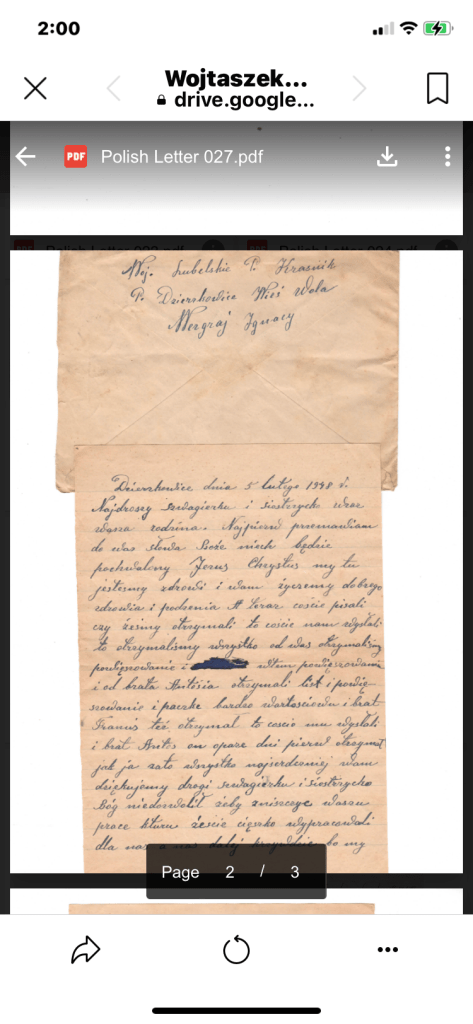 2:00
Wojtaszek...
drive.google...
PDF Polish Letter 027.pdf
Woj. Lubelskie P. Kraśnik
P. Dzierzkowice Wieś Wola
Wergraj Ignacy
Dzierzkowice dnia 5 lutego 1948 r.
Najdrozsy szwagierku i siostrzycko wraz
wasza rodzina. Najpierw przemawiam
do was słowa Boże niech będzie
pochwalony Jezus Chrystus my tu
jesteśmy zdrowi i wam życzemy dobrego
zdrowia i A teraz coście pisali
czy żeśmy otrzymali to coście nam wysłali
to otrzymaliśmy wszystko od was otrzymaliśmy
i wtim
i od brata Antosia otrzymali list i
i paczke bardzo wartościowu i brat
Franuś też otrzymał to coście mu wysłali
i brat Antoś on opare dni pierwe otrzymał
jak ja zato wszystko najserdeczniej wam
dziękujemy drogi szwagierku i siostrzycko
Bóg niedozwolił żeby zniszczyć waszu
prace kturu żeście ciężko wypracowali
dla nas a nas dalej bo my
Page 2 / 3